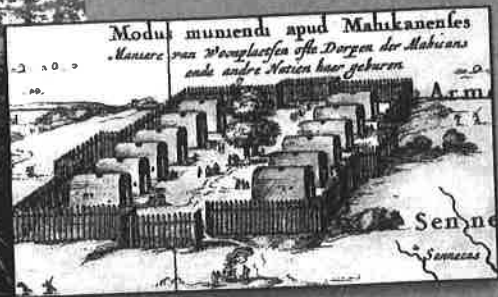 Modus muniendi apud Mahikanenses
Maniere van Woonplaetsen ofte Dorpen der Mahicans
ende andre Natien haer geburen
Arm
Senne
Sennecas